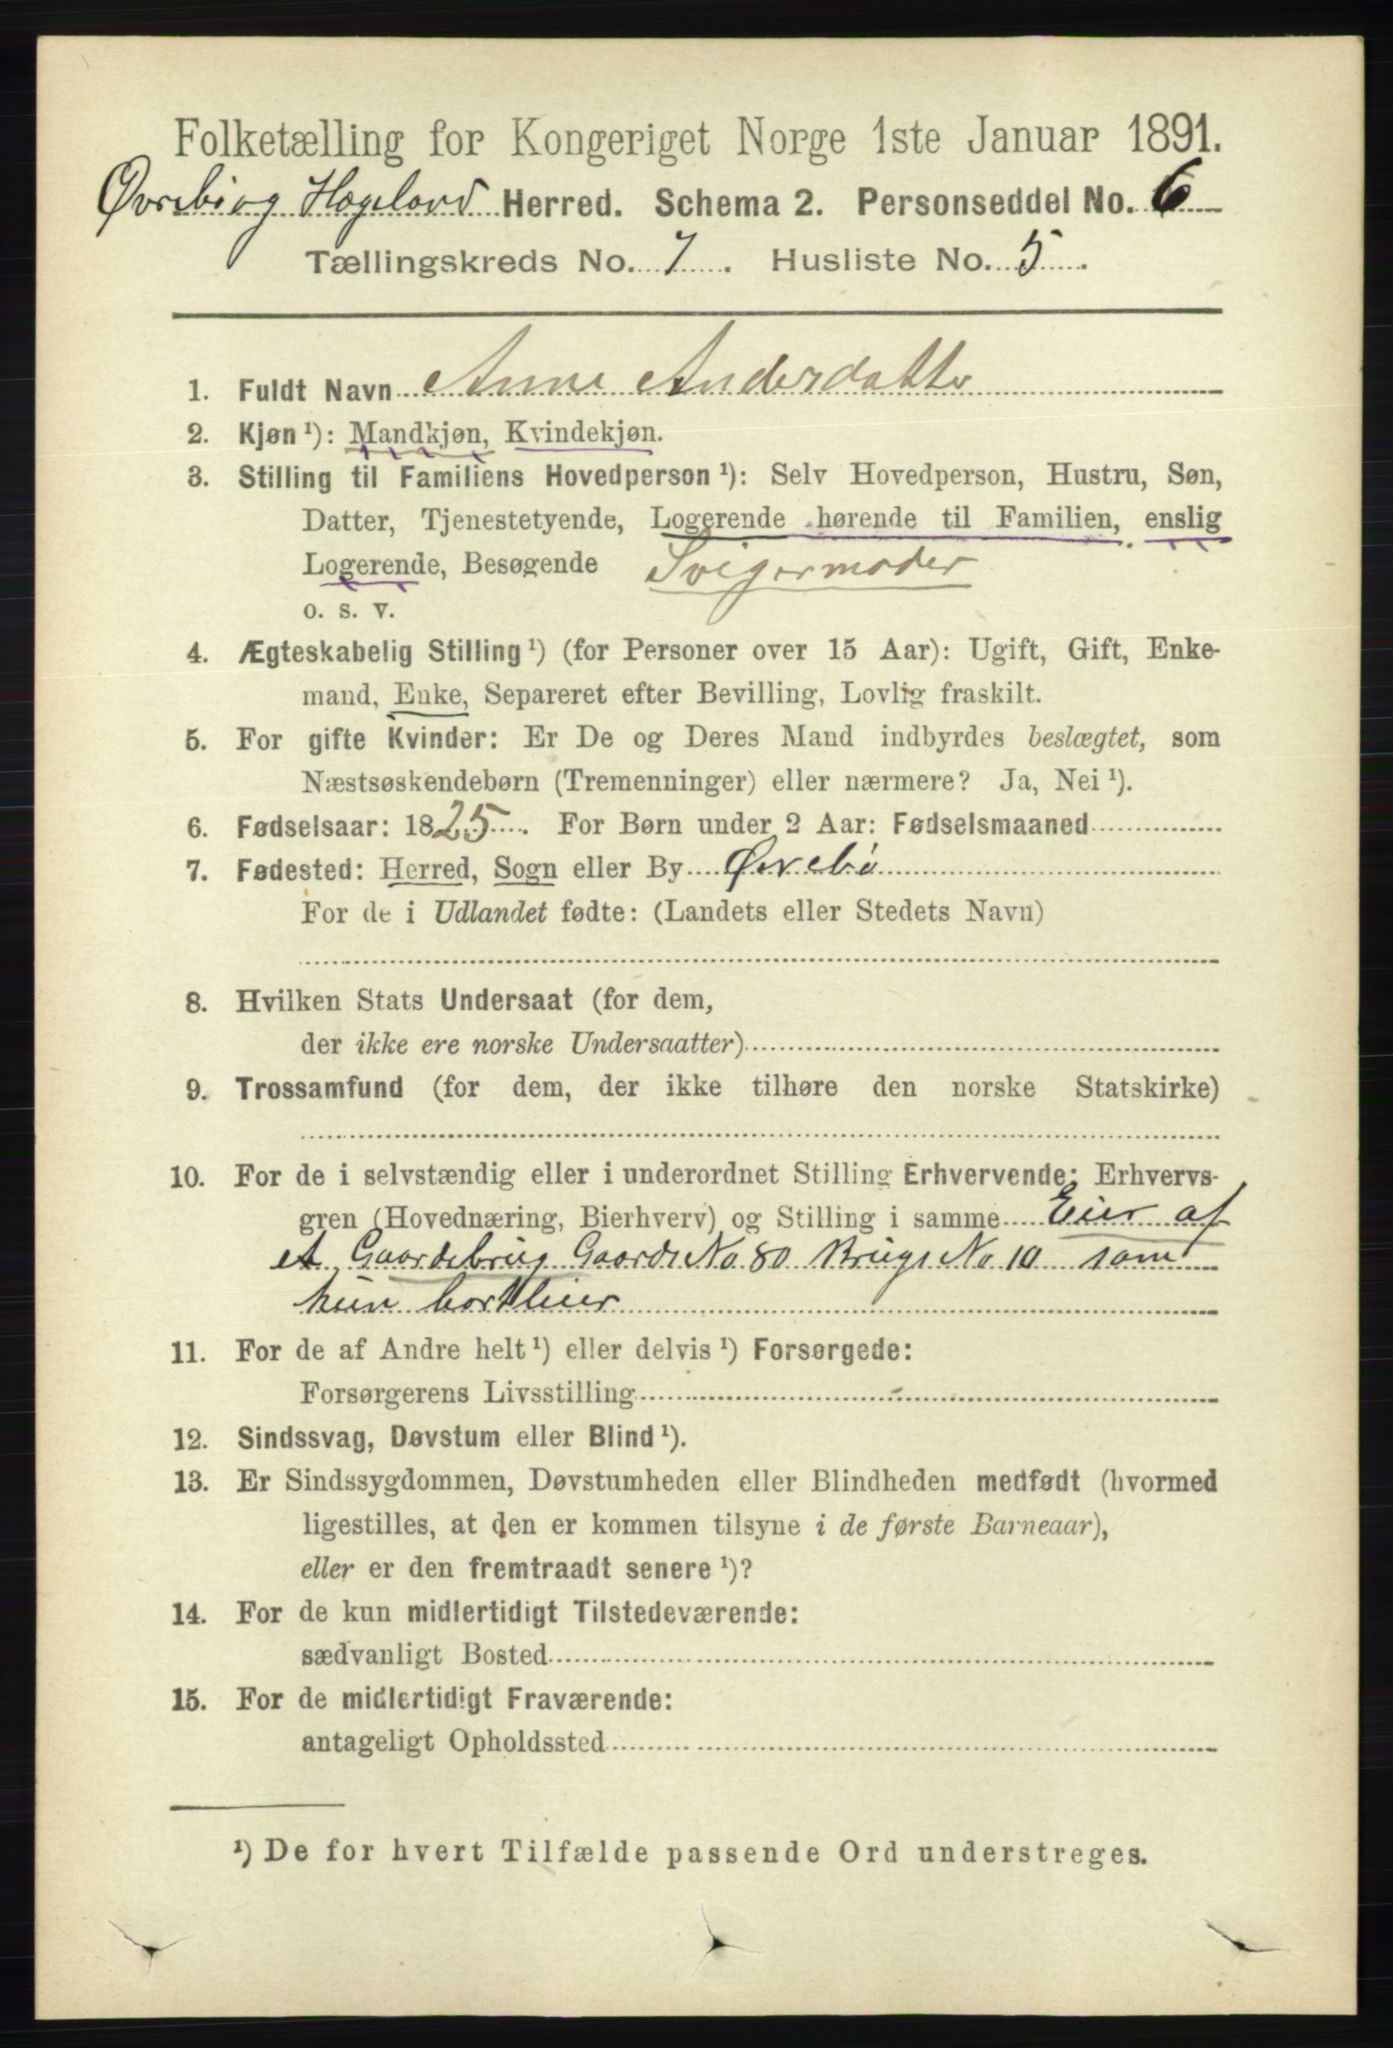 Folketælling for Kongeriget Norge 1ste Januar 1891.
Øvrebø og Hægeland Herred. Schema 2. Personseddel No. 6
Tællingskreds No. 7. Husliste No. 5.
1. Fuldt Navn Anne Andersdatte
2. Kjøn ¹): Mandkjøn, Kvindekjøn.
3. Stilling til Familiens Hovedperson ¹): Selv Hovedperson, Hustru, Søn,
Datter, Tjenestetyende, Logerende hørende til Familien, enslig
Logerende, Besøgende Svigermoder
o. s. v.
4. Ægteskabelig Stilling ¹) (for Personer over 15 Aar): Ugift, Gift, Enke-
mand, Enke, Separeret efter Bevilling, Lovlig fraskilt.
5. For gifte Kvinder: Er De og Deres Mand indbyrdes beslægtet, som
Næstsøskendebørn (Tremenninger) eller nærmere? Ja, Nei ¹).
6. Fødselsaar: 1825. For Børn under 2 Aar: Fødselsmaaned
7. Fødested: Herred, Sogn eller By Øvrebø
For de i Udlandet fødte: (Landets eller Stedets Navn)
8. Hvilken Stats Undersaat (for dem,
der ikke ere norske Undersaatter)
9. Trossamfund (for dem, der ikke tilhøre den norske Statskirke)
10. For de i selvstændig eller i underordnet Stilling Erhvervende: Erhvervs-
gren (Hovednæring, Bierhverv) og Stilling i samme Eier af
et Gaardsbrug Gaards No 80 Brugs No 10 som
hun bortleier
11. For de af Andre helt ¹) eller delvis ¹) Forsørgede:
Forsørgerens Livsstilling
12. Sindssvag, Døvstum eller Blind ¹).
13. Er Sindssygdommen, Døvstumheden eller Blindheden medfødt (hvormed
ligestilles, at den er kommen tilsyne i de første Barneaar),
eller er den fremtraadt senere ¹)?
14. For de kun midlertidigt Tilstedeværende:
sædvanligt Bosted
15. For de midlertidigt Fraværende:
antageligt Opholdssted
¹) De for hvert Tilfælde passende Ord understreges.